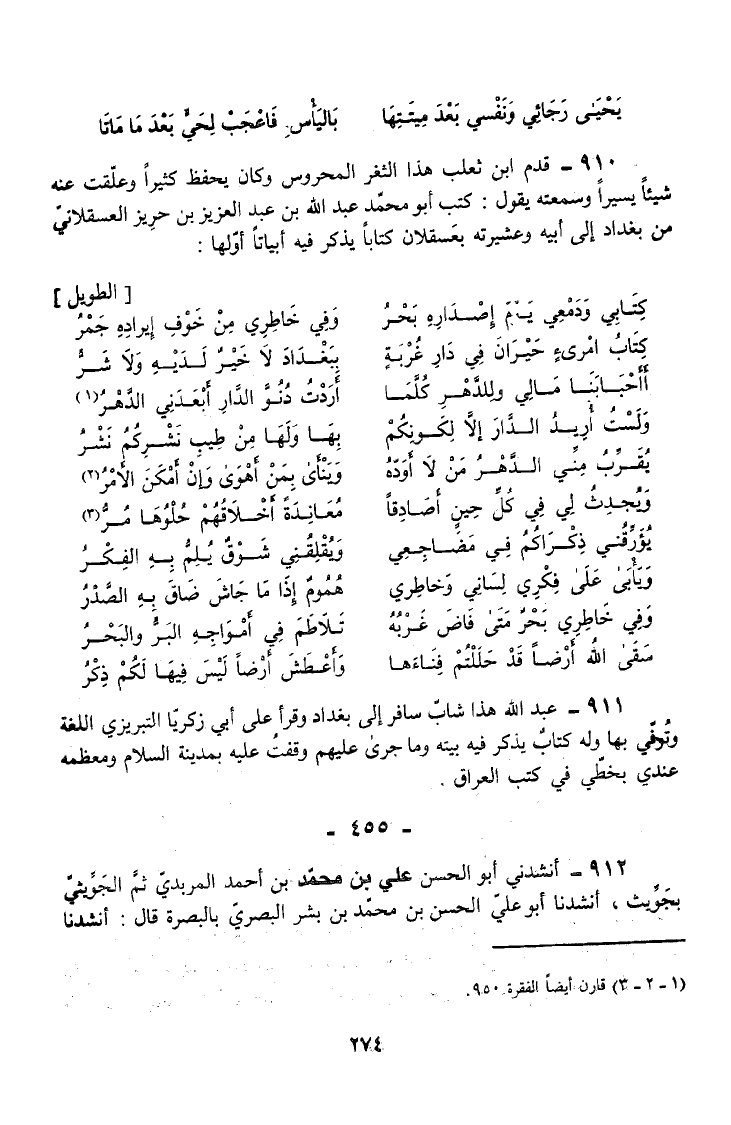 يَحْيَىٰ رَجَائِي وَنَفْسِي بَعْدَ مِيتَتِهَا بَاليَأْسِ. فَاعْجَبْ لِحَيٍّ بَعْدَ مَا مَاتَا
٩١٠ ـ قدم ابن ثعلب هذا الثغر المحروس وكان يحفظ كثيراً وعلّقت عنه
شيئاً يسيراً وسمعته يقول : كتب أبو محمّد عبد الله بن عبد العزيز بن حريز العسقلانيّ
من بغداد إلى أبيه وعشيرته بعَسقلان كتاباً يذكر فيه أبياتاً أوّلها :
[ الطويل ]
كِتَابِي وَدَمْعِي يَـوْمَ إِصْـدَارِهِ بَحْـرُ وَفِي خَاطِرِي مِنْ خَوْفِ إِيرادِهِ جَمْرُ
كِتَابُ امْرِىءٍ حَيْرَانَ فِي دَارِ غُرْبَةٍ بِبَغْدَادَ لَا خَيْرٌ لَـدَيْـهِ وَلَا شَـرُّ
أَأَحْبَابَنَـا مَـالِي ولِلدَّهْـرِ كُلَّمَـا أَرَدْتُ دُنُوَّ الدَّارِ أَبْعَدَنِي الدَّهْـرُ(١)
وَلَسْتُ أُرِيـدُ الـدَّارَ إِلَّا لِكَـونِكُمْ بِهَـا وَلَهَا مِنْ طِيبِ نَشْـرِكُمُ نَشْرُ
يُقَـرِّبُ مِنِّي الـدَّهْـرُ مَنْ لَا أَوَدّهُ وَيَنْأَىٰ بِمَنْ أَهْوَىٰ وَإِنْ أَمْكَنَ الْأَمْرُ(٢)
وَيُحْدِثُ لِي فِي كُلِّ حِينٍ أَصَادِقاً مُعَـانِدَةً أَخْـلَاقُهُمْ حُلْوُهَا مُـرُّ(٣)
يُؤَرِّقُني ذِكْـرَاكُمُ فِـي مَضَـاجِعِي وَيُقْلِقُنِي شَـوْقٌ يُلِمُّ بِـهِ الفِكْـرُ
وَيَأْبَىٰ عَلَىٰ فِكْرِي لِسَانِي وَخَاطِرِي هُمُومٌ إِذَا مَا جَاشَ ضَاقَ بِهِ الصَّدْرُ
وَفِي خَاطِرِي بَحْرٌ مَتَىٰ فَاضَ غَرْبُهُ تَـلَاطَمَ فِي أَمْـوَاجِـهِ البَـرُّ والبَحْـرُ
سَقَىٰ اللهُ أَرْضـاً قَدْ حَلَلْتُمْ فِنَـاءَهَـا وَأَعْـطَشَ أَرْضاً لَيْسَ فِيهَـا لَكُمْ ذِكْرُ
٩١١ ـ عبد الله هذا شابّ سافر إلى بغداد وقرأ على أبي زكريّا التبريزي اللغة
وتُوفّي بها وله كتابٌ يذكر فيه بيته وما جرىٰ عليهم وقفتُ عليه بمدينة السلام ومعظمه
عندي بخطّي في كتب العراق .
ـ ٤٥٥ ـ
٩١٢ ـ أنشدني أبو الحسن علي بن محمّد بن أحمد المربديّ ثمّ الجَوِّيثيّ
بجَوِّيث ، أنشدنا أبو عليّ الحسن بن محمّد بن بشر البصريّ بالبصرة قال : أنشدنا
(١ - ٢ - ٣) قارن أيضاً الفقرة ٩٥٠.
٢٧٤